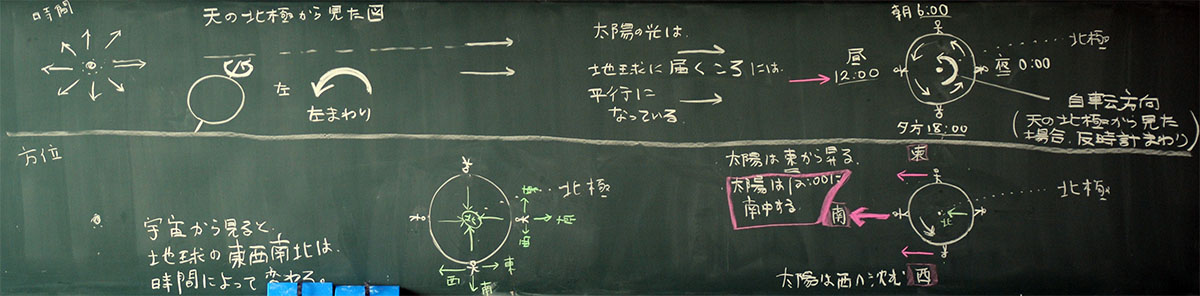 時間
天の北極から見た図
左
左まわり
太陽の光は、
地球に届くころには、
平行に
なっている。
朝6:00
北極
昼
12:00
夜 0:00
夕方18:00
自転方向
(天の北極から見た
場合、反時計まわり)
方位
宇宙から見ると、
地球の東西南北は、
時間によって変わる。
北極
西
東
南
太陽は東から昇る。
太陽は12:00に
南中する。
東
南
西
北
北極
太陽は西へ沈む